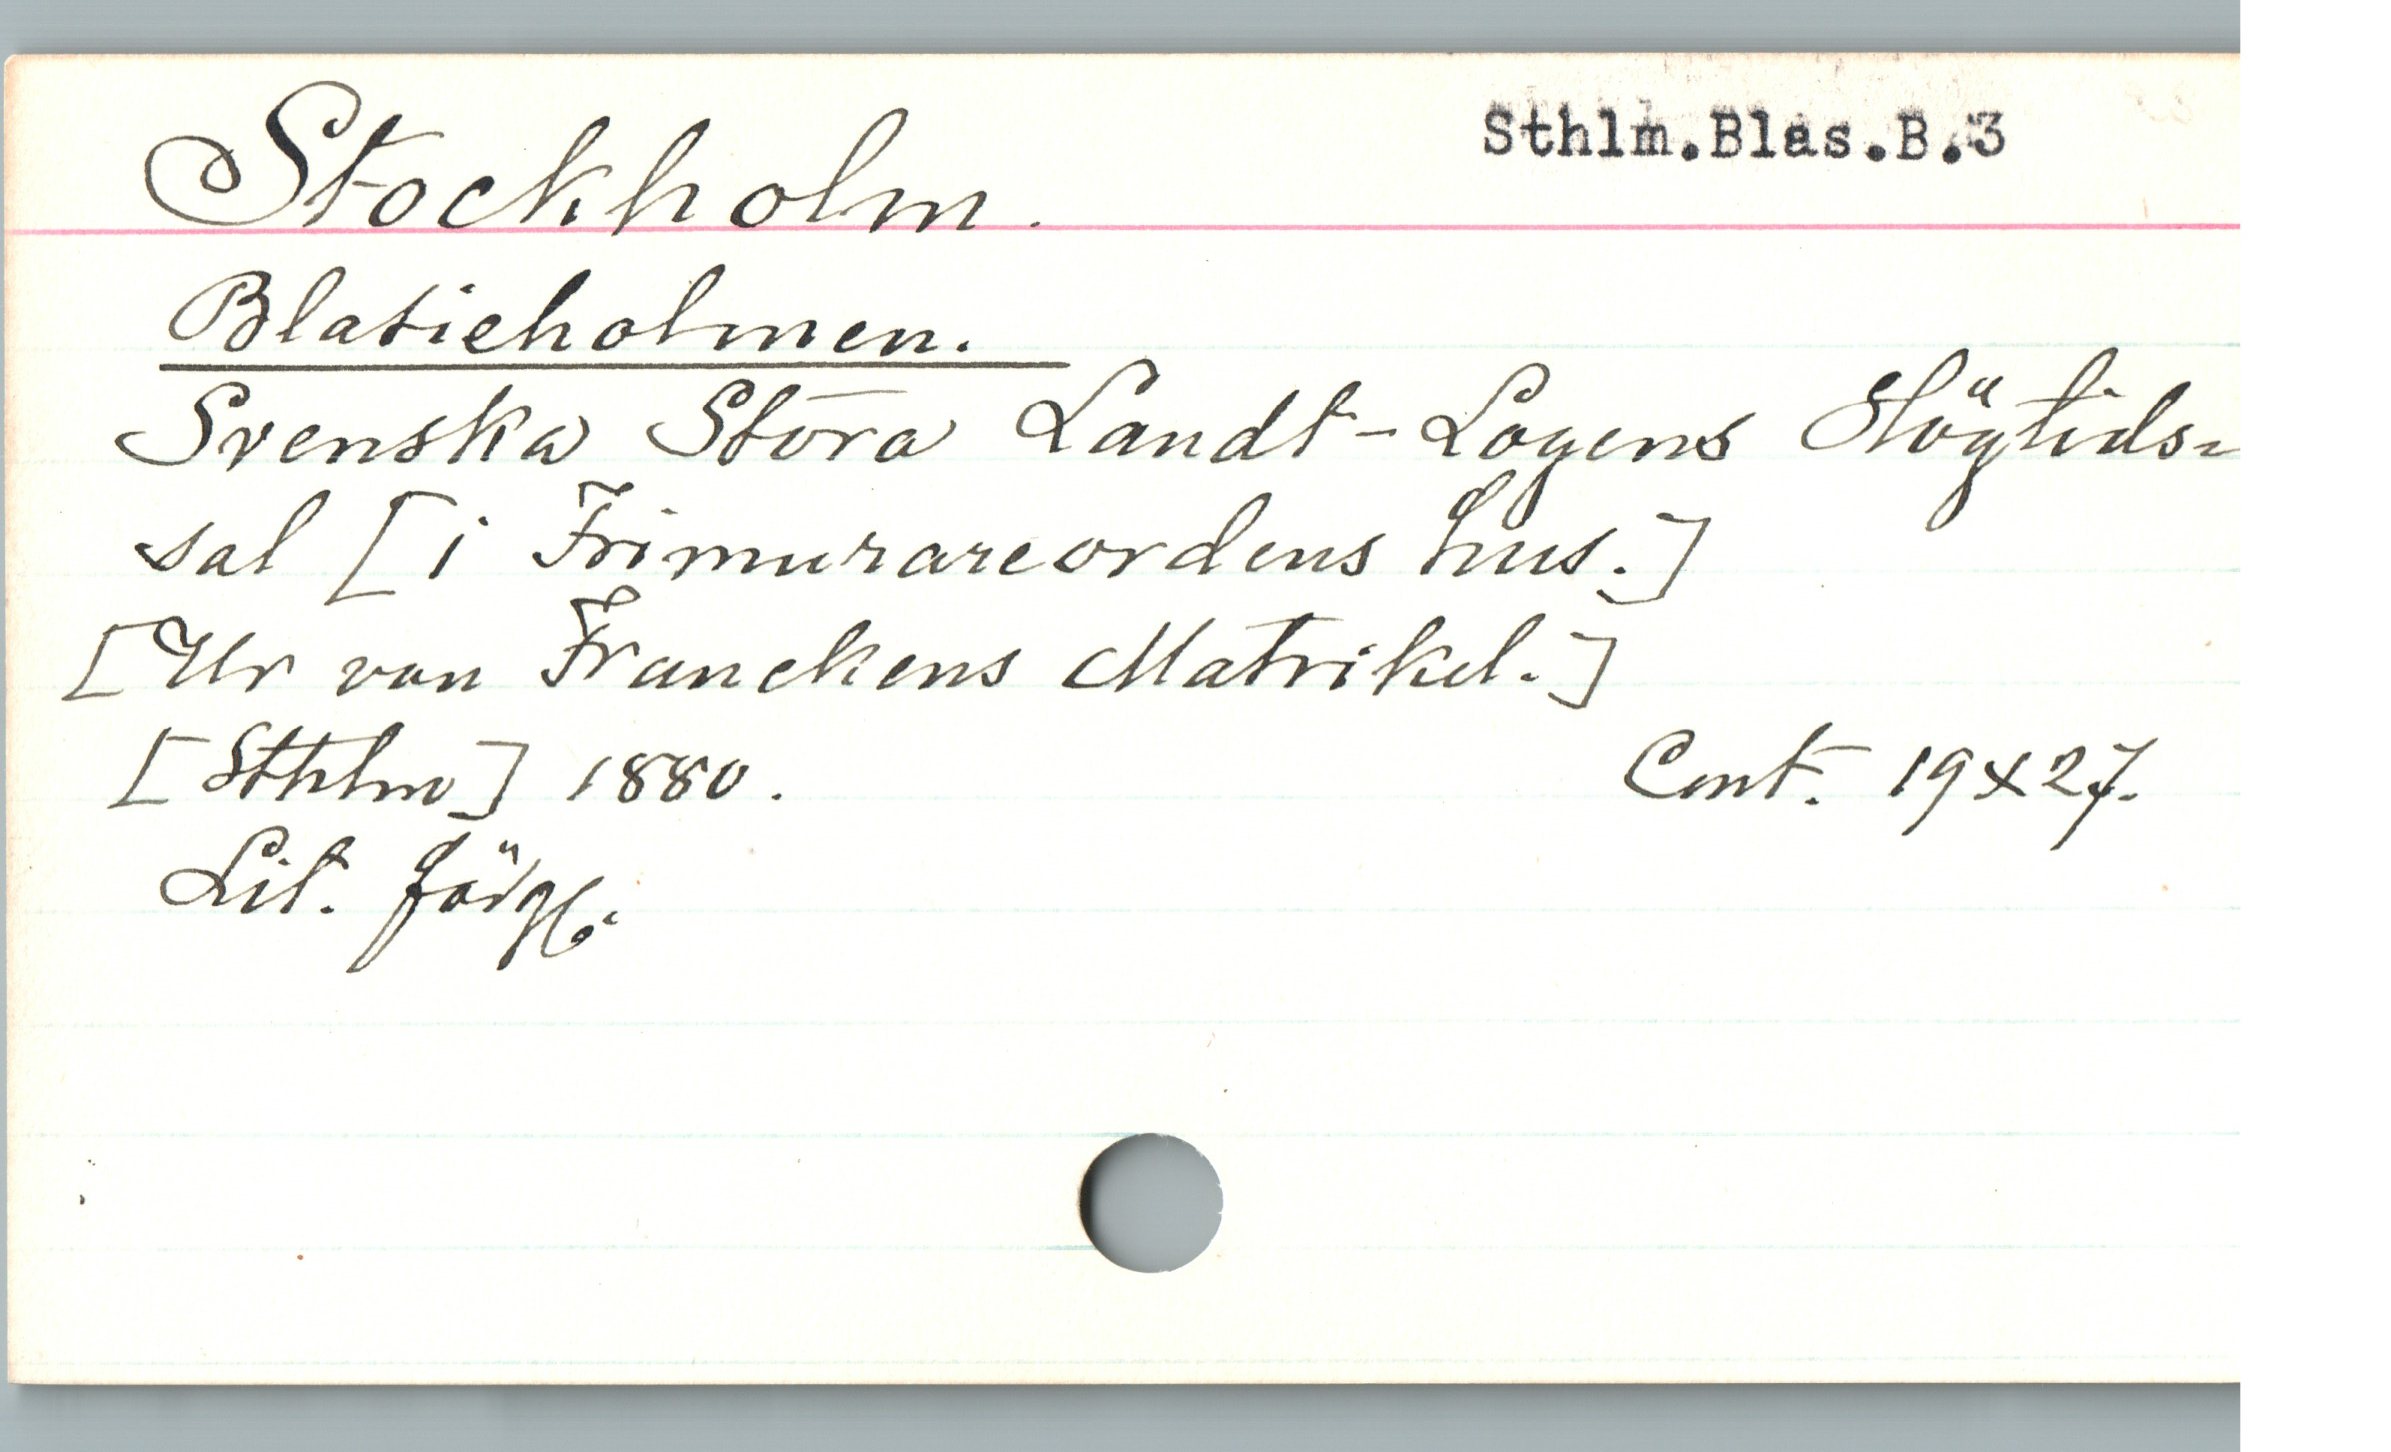 Stockholm.
Sthlm.Blas.B.3
Blasieholmen.
Svenska Stora Landt-Logens Högtids-
sal [i Frimurareordens hus.]
[Ur von Franckens Matrikel.]
[Sthlm] 1880. Cent. 19 x 27.
Lit. färgl.